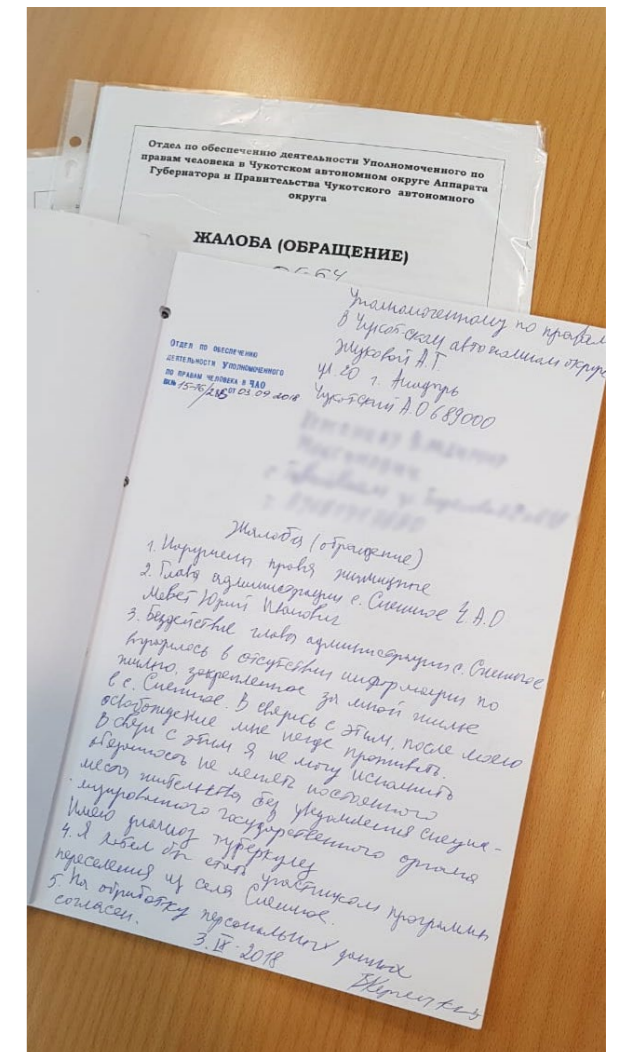 Отдел по обеспечению деятельности Уполномоченного по
правам человека в Чукотском автономном округе Аппарата
Губернатора и Правительства Чукотского автономного
округа
ЖАЛОБА (ОБРАЩЕНИЕ)
Уполномоченному по правам
в Чукотском автономном округе
Жуковой А.Г.
г. Анадырь
Чукотский А.О 689000
Отдел по обеспечению
деятельности Уполномоченного
по правам человека в ЧАО
от 03.09.2018
Жалоба (обращение)
1. Нарушены права жилищные
2. Глава администрации с. Снежное Ч.А.О
Мевет Юрий Иванович
3. Бездействие главы администрации с. Снежное
выразилось в отсутствии информации по
жилью, закрепленное за мной жилье
в с. Снежное. В связи с этим, после моего
освобождение мне негде проживать.
В связи с этим я не могу исполнить
обязанность не менять постоянного
места жительства без уведомления специа-
лизированного государственного органа
Имею диагноз туберкулез
4. Я хотел бы стать участником программы
переселения из села Снежное.
5. На обработку персональных данных
согласен.
3. IX - 2018